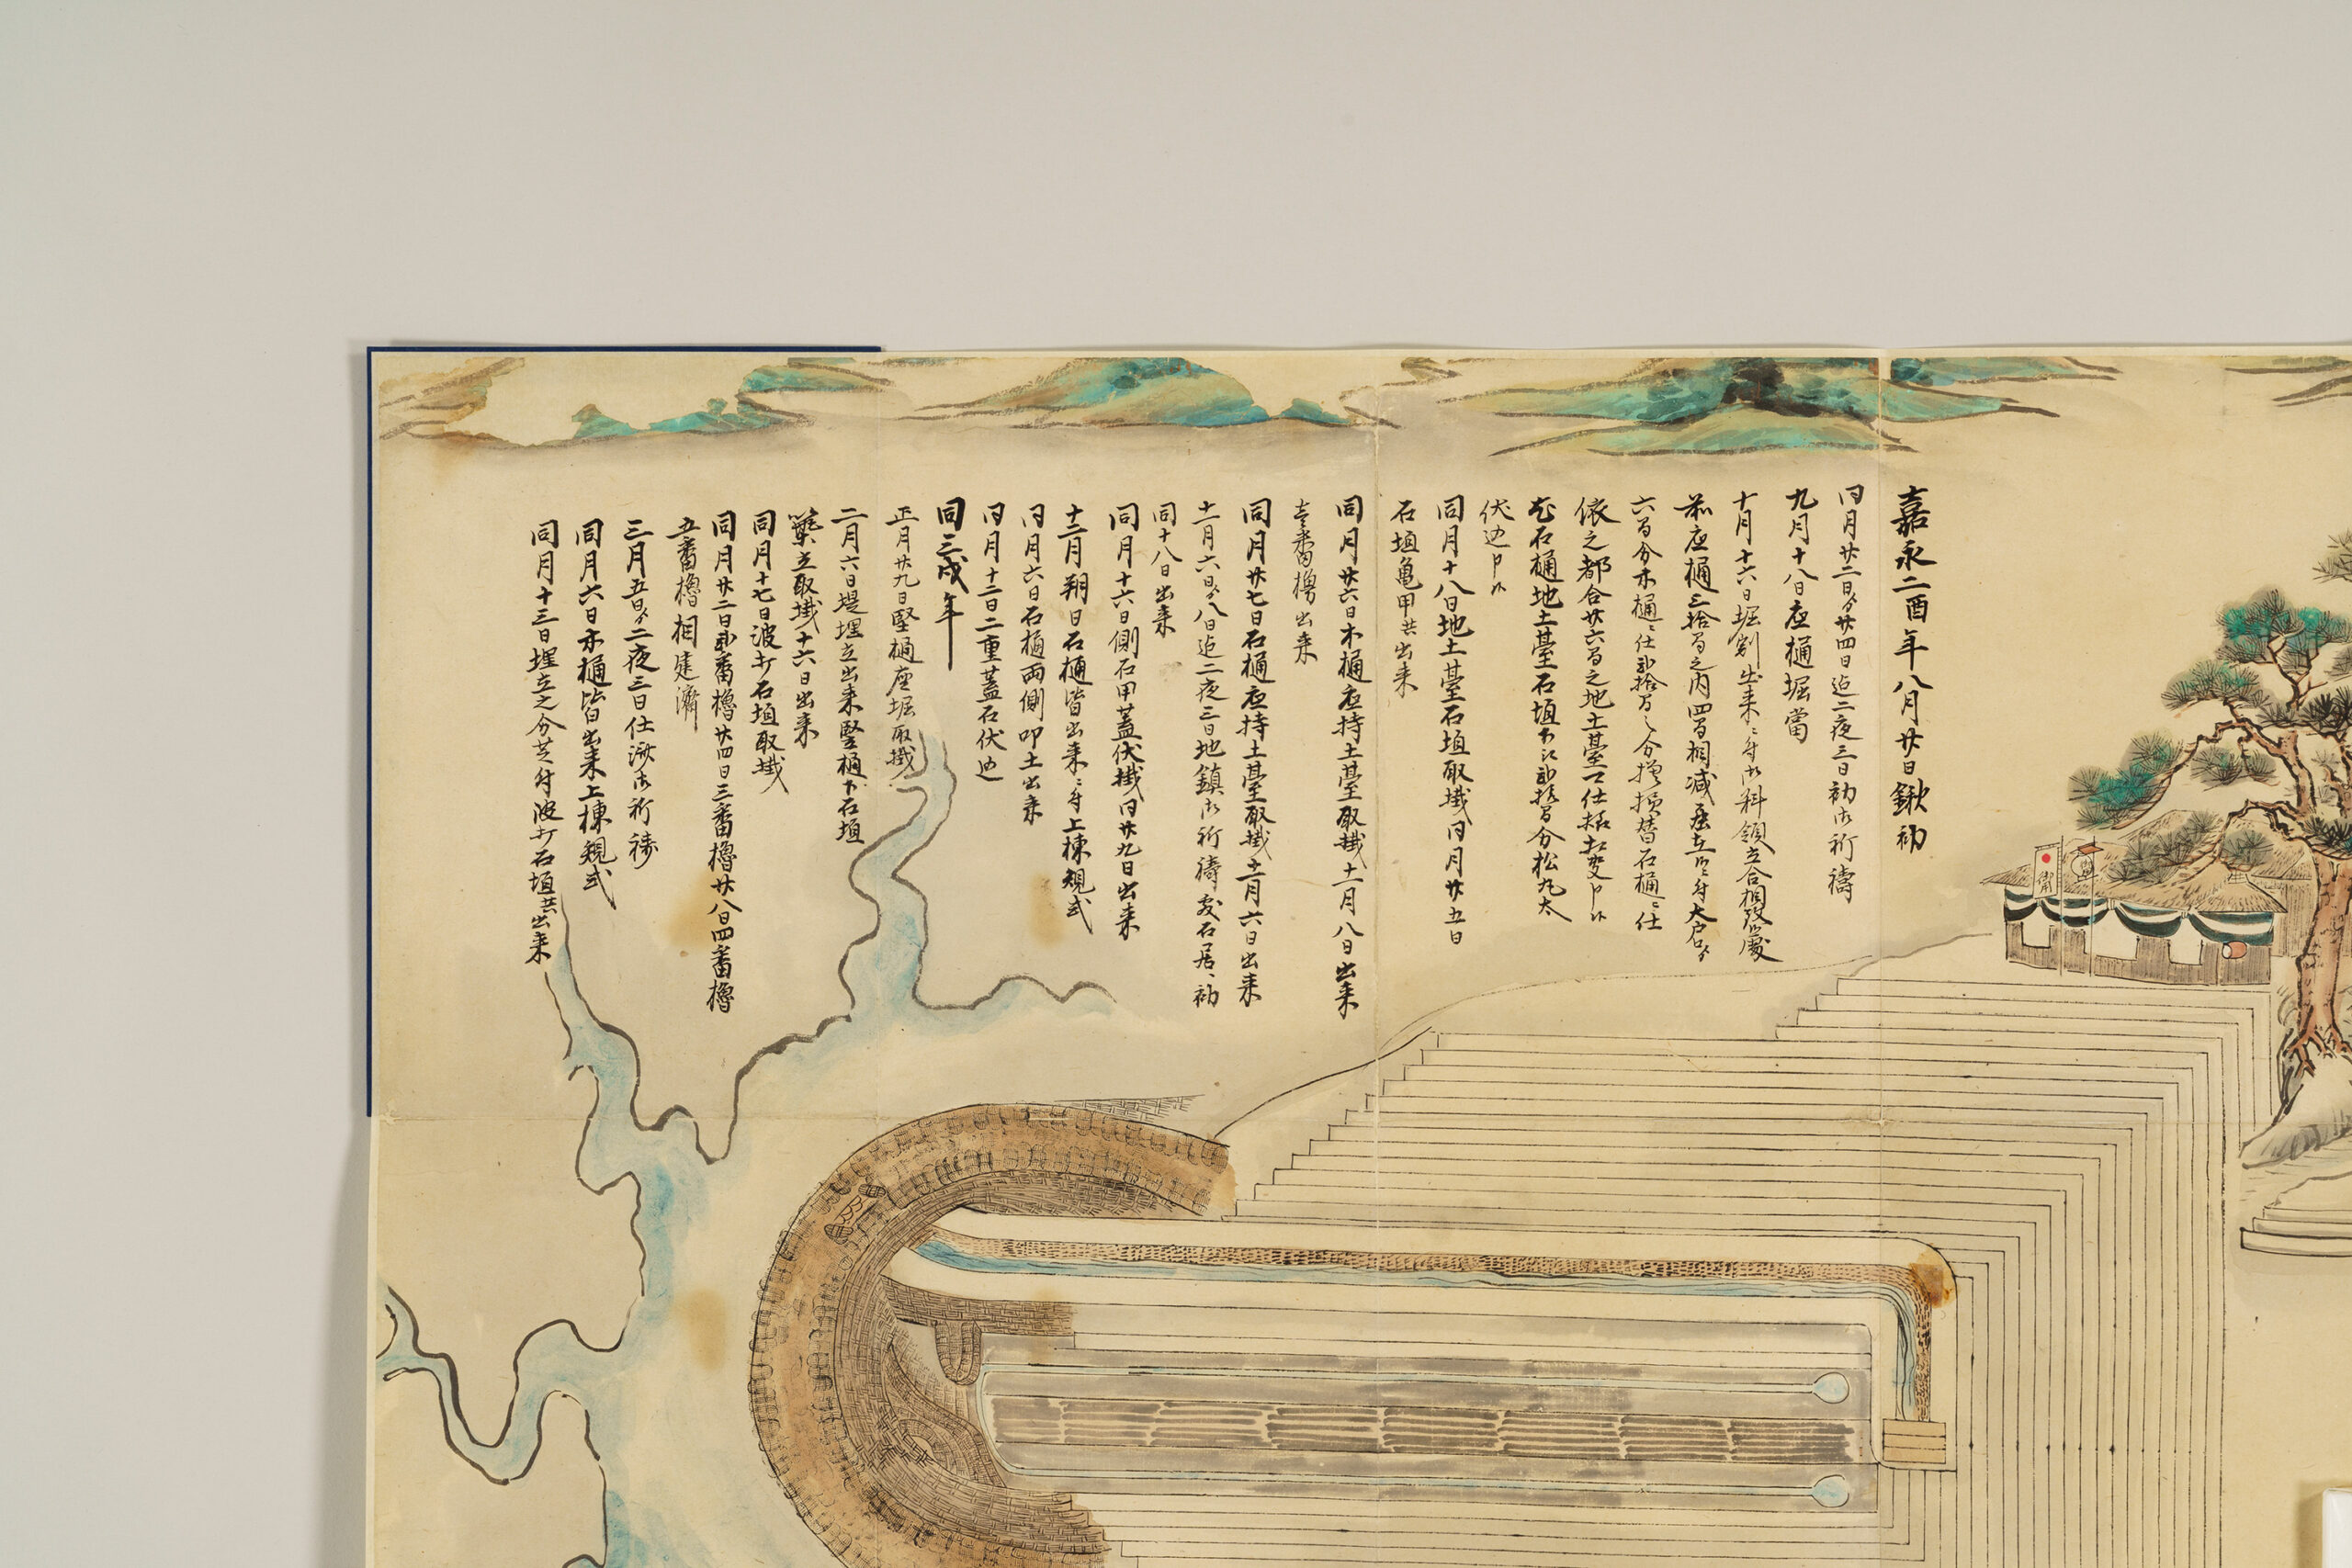 嘉永二酉年八月廿日鍬初
同月廿二日ゟ廿四日迠二夜三日初御祈禱
九月十八日底樋堀當
十月十六日堀割出来ニ付御料領立合相改候處
前底樋三拾間之内四間相減居在候ニ付大戸ゟ
六間分木樋ニ仕弐拾間之分増掘替石樋ニ仕
依之都合廿六間之地土臺
石樋地土臺石垣下江弐拾間分松丸太
伏込申候
同月十八日地土臺石垣取掛同月廿五日
石垣亀甲共出来
同月廿六日木樋底持土臺取掛十一月八日出来
壱番櫓出来
同月廿七日石樋底持土臺取掛十一月六日出来
十一月六日ゟ八日迠二夜三日地鎮御祈禱并石居初
同十八日出来
同月十六日側石甲蓋伏掛同廿九日出来
十二月朔日石樋皆出来ニ付上棟規式
同月六日石樋両側叩土出来
同月十二日二重蓋石伏込
同三戌年
正月廿九日竪樋座堀取掛
二月六日堤埋立出来竪樋下石垣
築立取掛十六日出来
同月十七日波打石垣取掛
同月廿二日弐番櫓廿四日三番櫓廿八日四番櫓
五番櫓相建濟
三月五日ゟ二夜三日仕湫御祈禱
同月六日木樋皆出来上棟規式
同月十三日埋立之分芝付波打石垣共出来